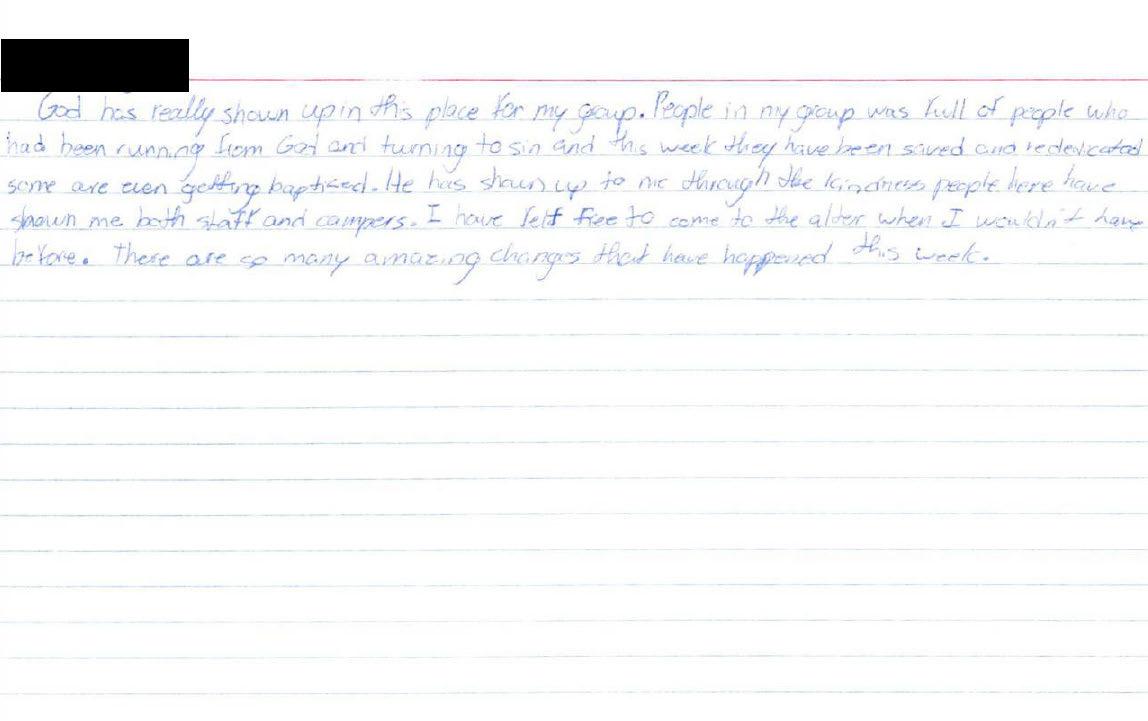 God has really shown up in this place for my group. People in my group was full of people who
had been running from God and turning to sin and this week they have been saved and rededicated
some are even getting baptised. He has shown up to me through the kindness people here have
shown me both staff and campers. I have felt free to come to the alter when I wouldn't have
before. There are so many amazing changes that have happened this week.